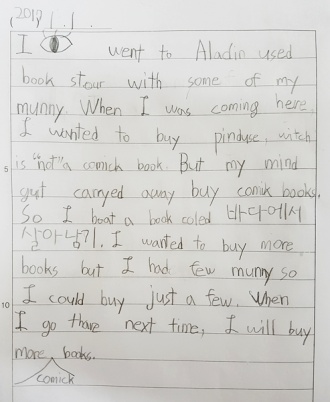 2017. 1. 1.
I went to Aladin used
book stour with some of my
munny. When I was coming here,
I wanted to buy pinduse, witch
5 is "not" a comick book. But my mind
gut carryed away buy comik books.
So I boat a book coled 바다에서
살아남기. I wanted to buy more
books but I had few munny so
10 I could buy just a few. When
I go thare next time, I will buy
more books.
comick